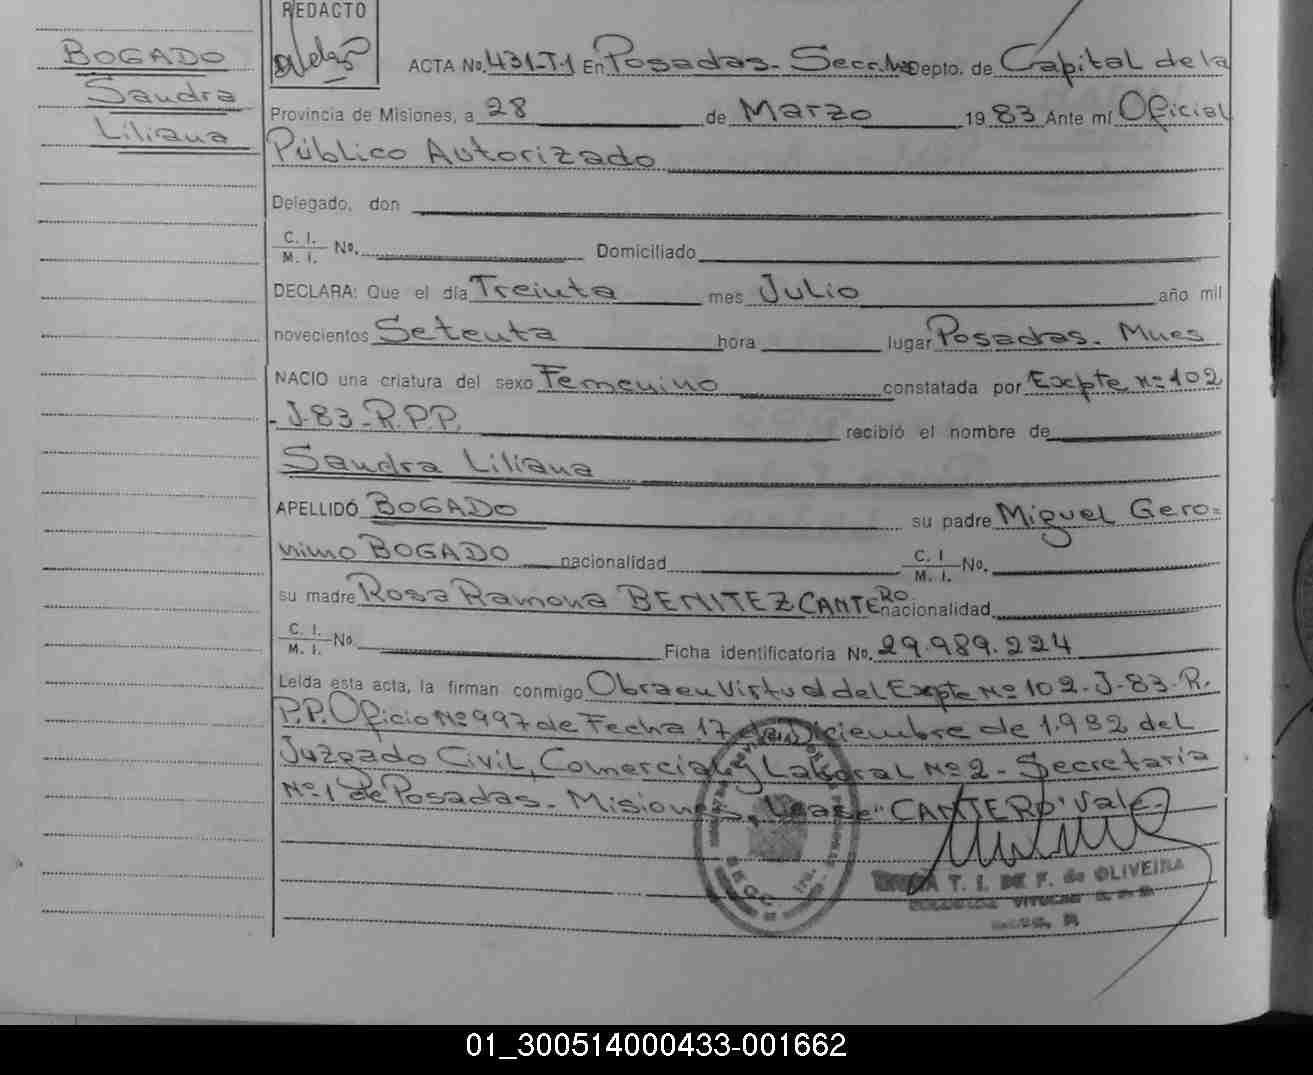 REDACTO
BOGADO
Sandra
Liliana
ACTA No. 431-T1 En Posadas. Secc. Depto. de Capital de la
Provincia de Misiones, a 28 de Marzo 1983 Ante mí Oficial
Público Autorizado
Delegado, don
C. I.
M. I. No. Domiciliado
DECLARA: Que el día Treinta mes Julio año mil
novecientos Setenta hora lugar Posadas. Mnes
NACIO una criatura del sexo Femenino constatada por Expte Nº 102
-J-83-R.P.P. recibió el nombre de
Sandra Liliana
APELLIDÓ BOGADO su padre Miguel Gero=
nimo BOGADO nacionalidad C. I.
M. I. No.
su madre Rosa Ramona BENITEZ CANTERO nacionalidad
C. I.
M. I. No. Ficha identificatoria No. 29.989.224
Leída esta acta, la firman conmigo Obra en Virtud del Expte Nº 102-J-83-R.
P.P. Oficio Nº 997 de Fecha 17 de Diciembre de 1.982 del
Juzgado Civil, Comercial y Laboral Nº 2 - Secretaria
Nº 1 de Posadas. Misiones, Lease "CANTERO" Vale.
T. I. DE F. de OLIVEIRA
01_300514000433-001662